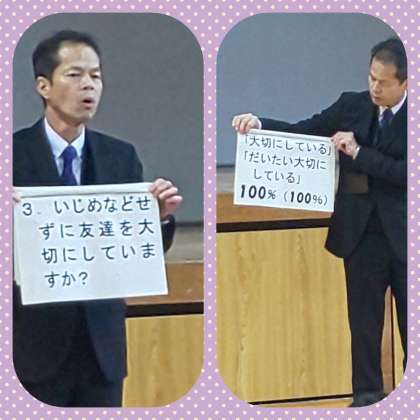 3．いじめなどせ
ずに友達を大
切にしていま
すか?
「大切にしている」
「だいたい大切に
している」
100%（100%）